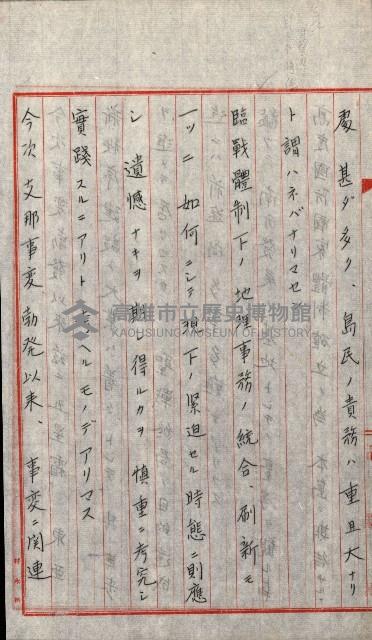 處甚ダ多ク、島民ノ責務ハ重且大ナリ
ト謂ハネバナリマセ
臨戰體制下ノ地理事務ノ統合、刷新モ
一ツニ如何ニシテ現下ノ緊迫セル時態ニ則應
シ遺憾ナキヲ期シ得ルカヲ慎重ニ考究シ
實踐スルニアリト ヘルモノデアリマス
今次支那事変勃発以来、事変ニ関連
高雄市立歷史博物館
KAOHSIUNG MUSEUM OF HISTORY